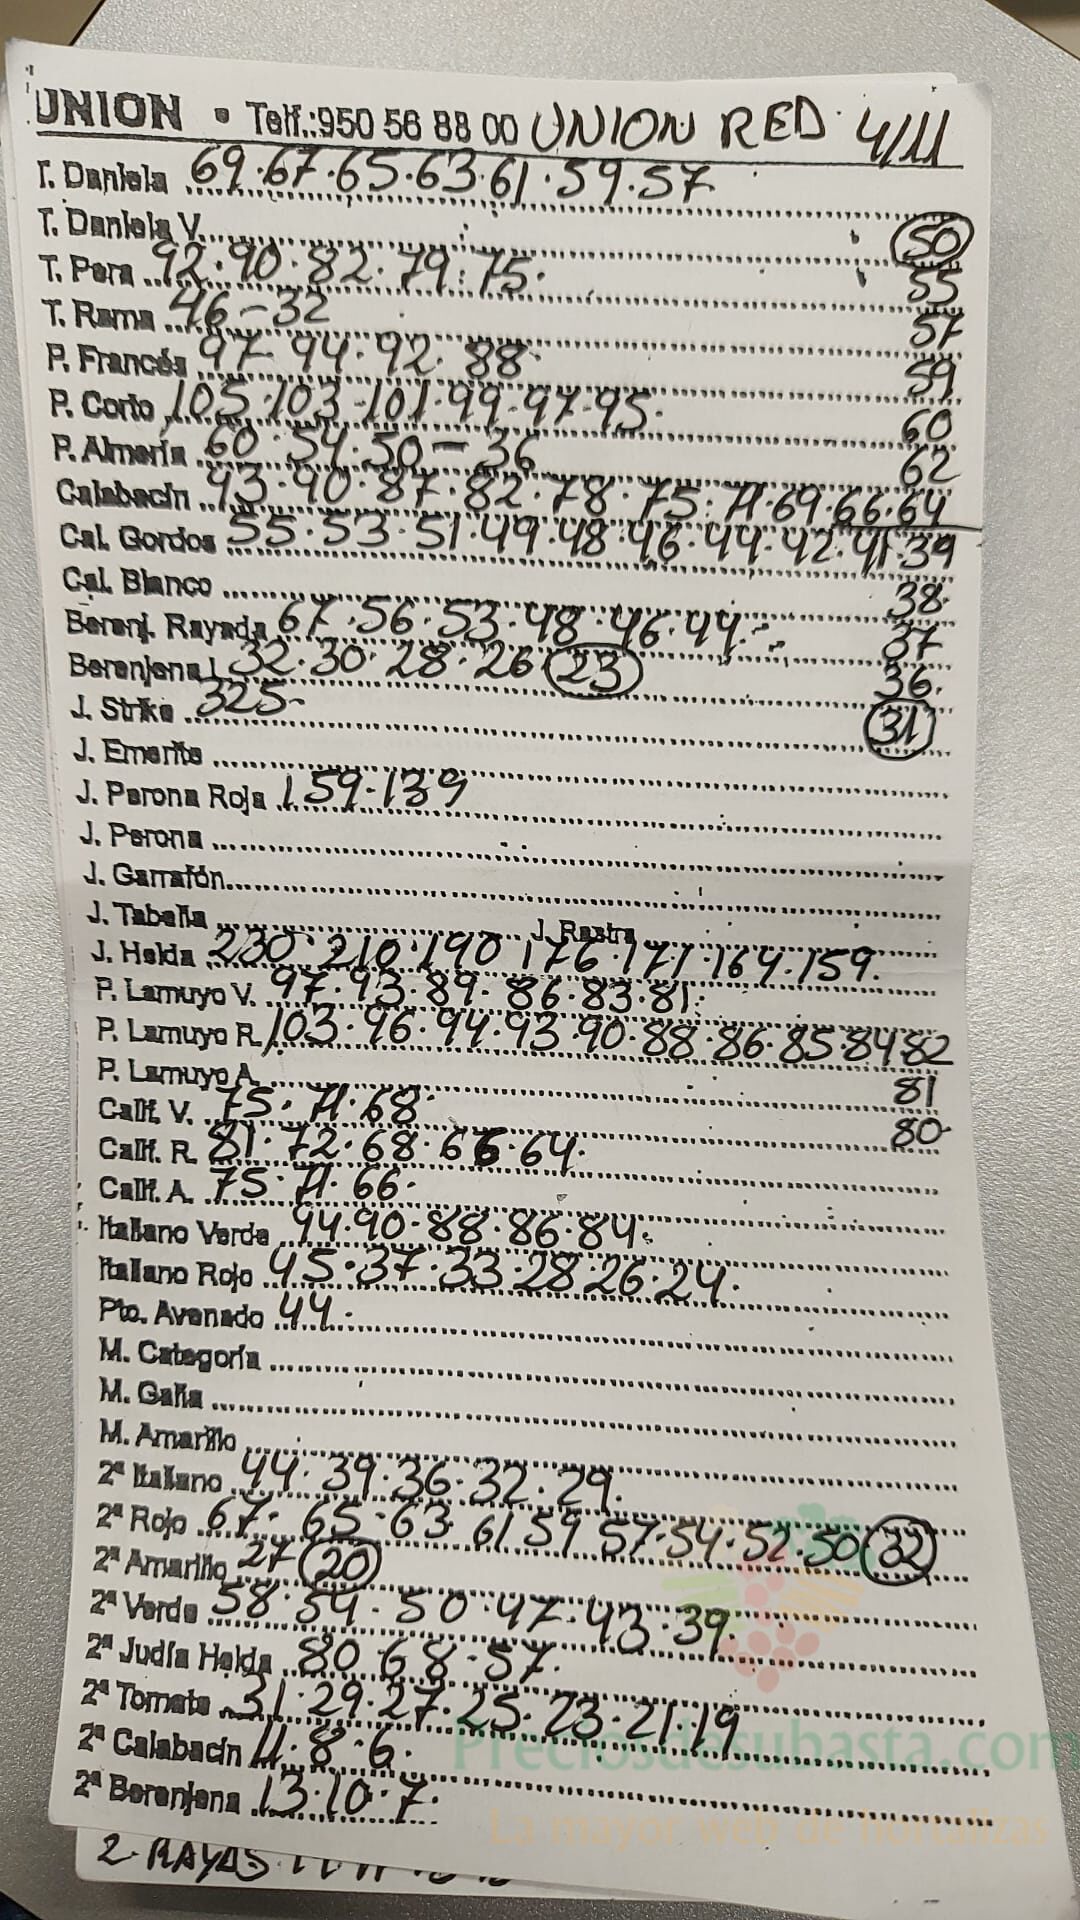 UNION • Telf.:950 56 88 00 UNION RED. 4/11
T. Daniela 69.67.65.63.61.59.57
T. Daniela V. 50
T. Pera 92.90.82.79.75. 55
T. Rama 46-32 57
P. Francés 97-94.92.88 59
P. Corto 105.103-101.99.97.95. 60
P. Almería 60.54.50-36 62
Calabacín 93.90.87.82.78.75.71.69.66.64
Cal. Gordos 55.53.51.49.48.46.44.42.41.39
Cal. Blanco 38.
Berenj. Rayada 67.56.53.48.46.44. 37
Berenjena L 32.30.28.26 23 36.
J. Strike 325- 31
J. Emerite
J. Perona Roja 159.139
J. Perona
J. Garrafón
J. Tabella J. Rastra
J. Helda 230.210.190 176.171.164.159.
P. Lamuyo V. 97.93.89.86.83.81.
P. Lamuyo R. 103.96.94.93.90.88.86.85.84.82
P. Lamuyo A. 81
Calif. V. 75.71.68. 80.
Calif. R. 81.72.68.66.64.
Calif. A. 75.71.66.
Italiano Verde 94.90.88.86.84.
Italiano Rojo 45.37.33.28.26.24.
Pto. Avenado 44.
M. Categoría
M. Galia
M. Amarillo
2ª Italiano 44.39.36.32.29.
2ª Rojo 67.65.63 61 59 57.54.52.50 32
2ª Amarillo 27 20
2ª Verde 58.54.50.47.43.39.
2ª Judía Helda 80.68-57.
2ª Tomate 31.29.27.25.23.21.19
2ª Calabacín 11.8.6. Preciosdesubasta.com
2ª Berenjena 13.10.7. La mayor web de hortalizas
2. RAYAS